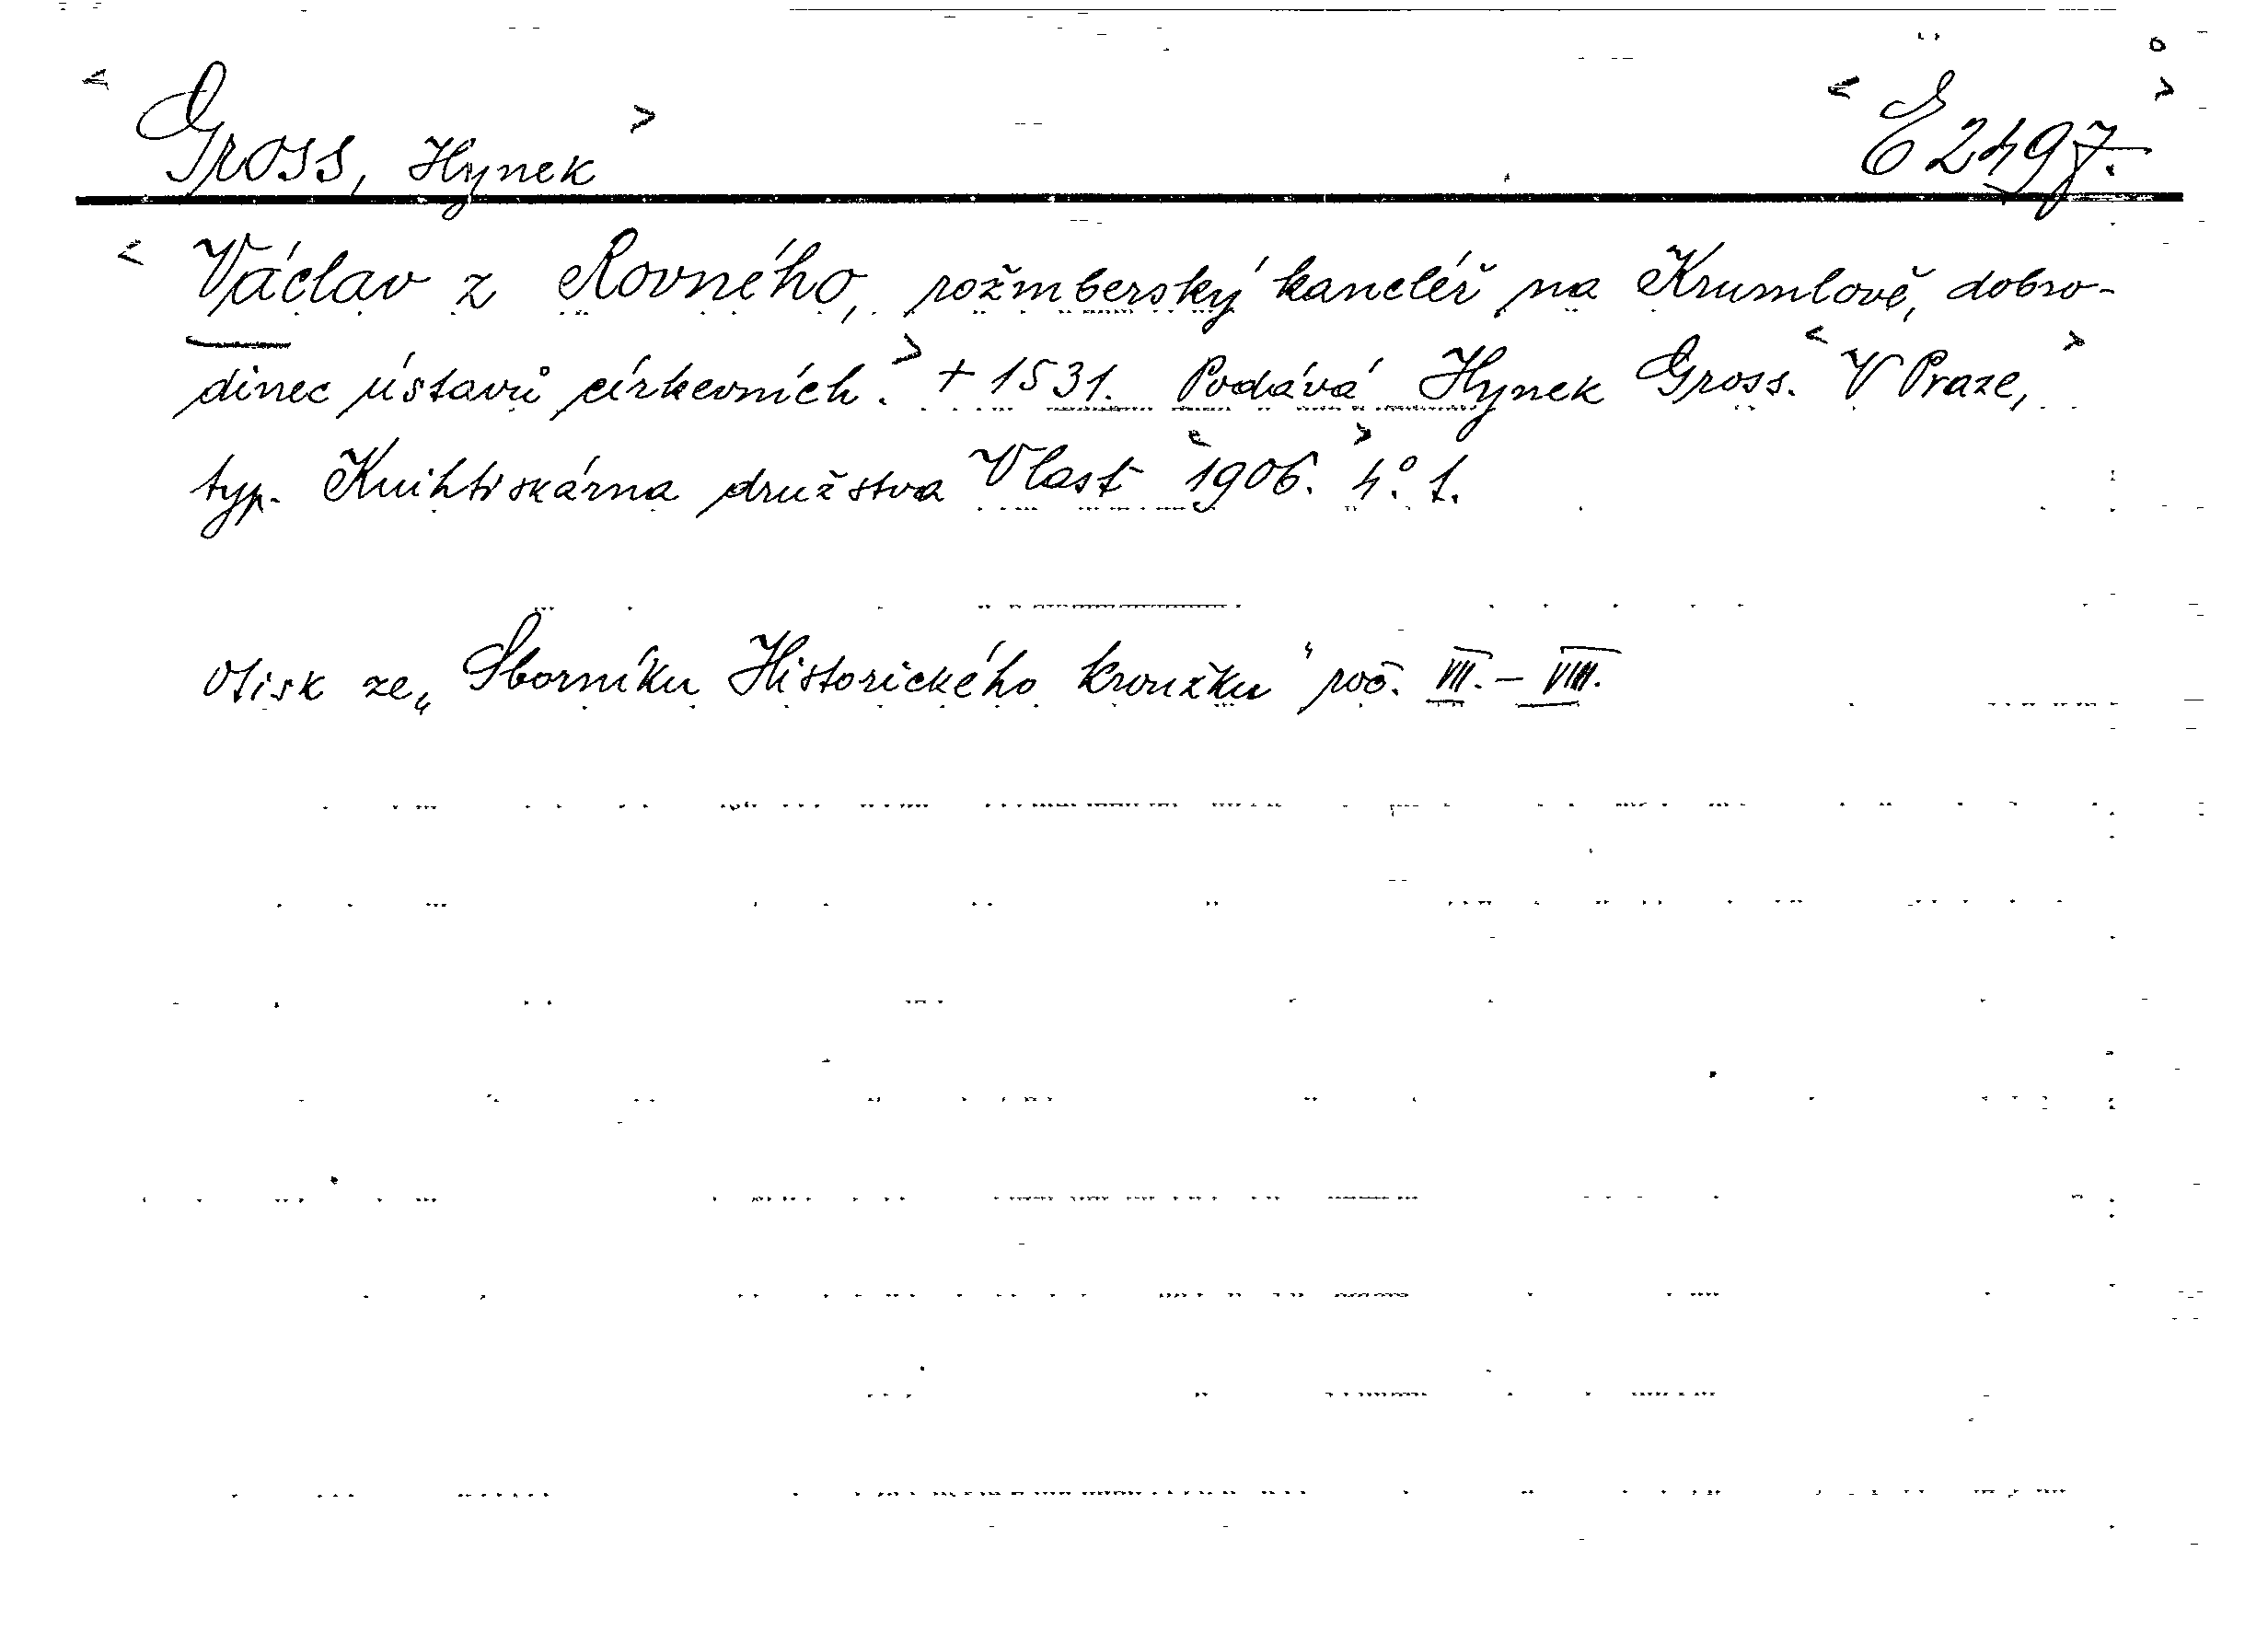 < Gross, Hynek > < E 2497. >
< Václav z Rovného, rožmberský kancléř na Krumlově, dobro-
dinec ústavů církevních. > + 1531. Podává Hynek Gross. < V Praze, >
typ. Knihtiskárna družstva Vlast < 1906. > 4° 1.
Otisk ze „Sborníku Historického kroužku“ roč. VII. – VIII.